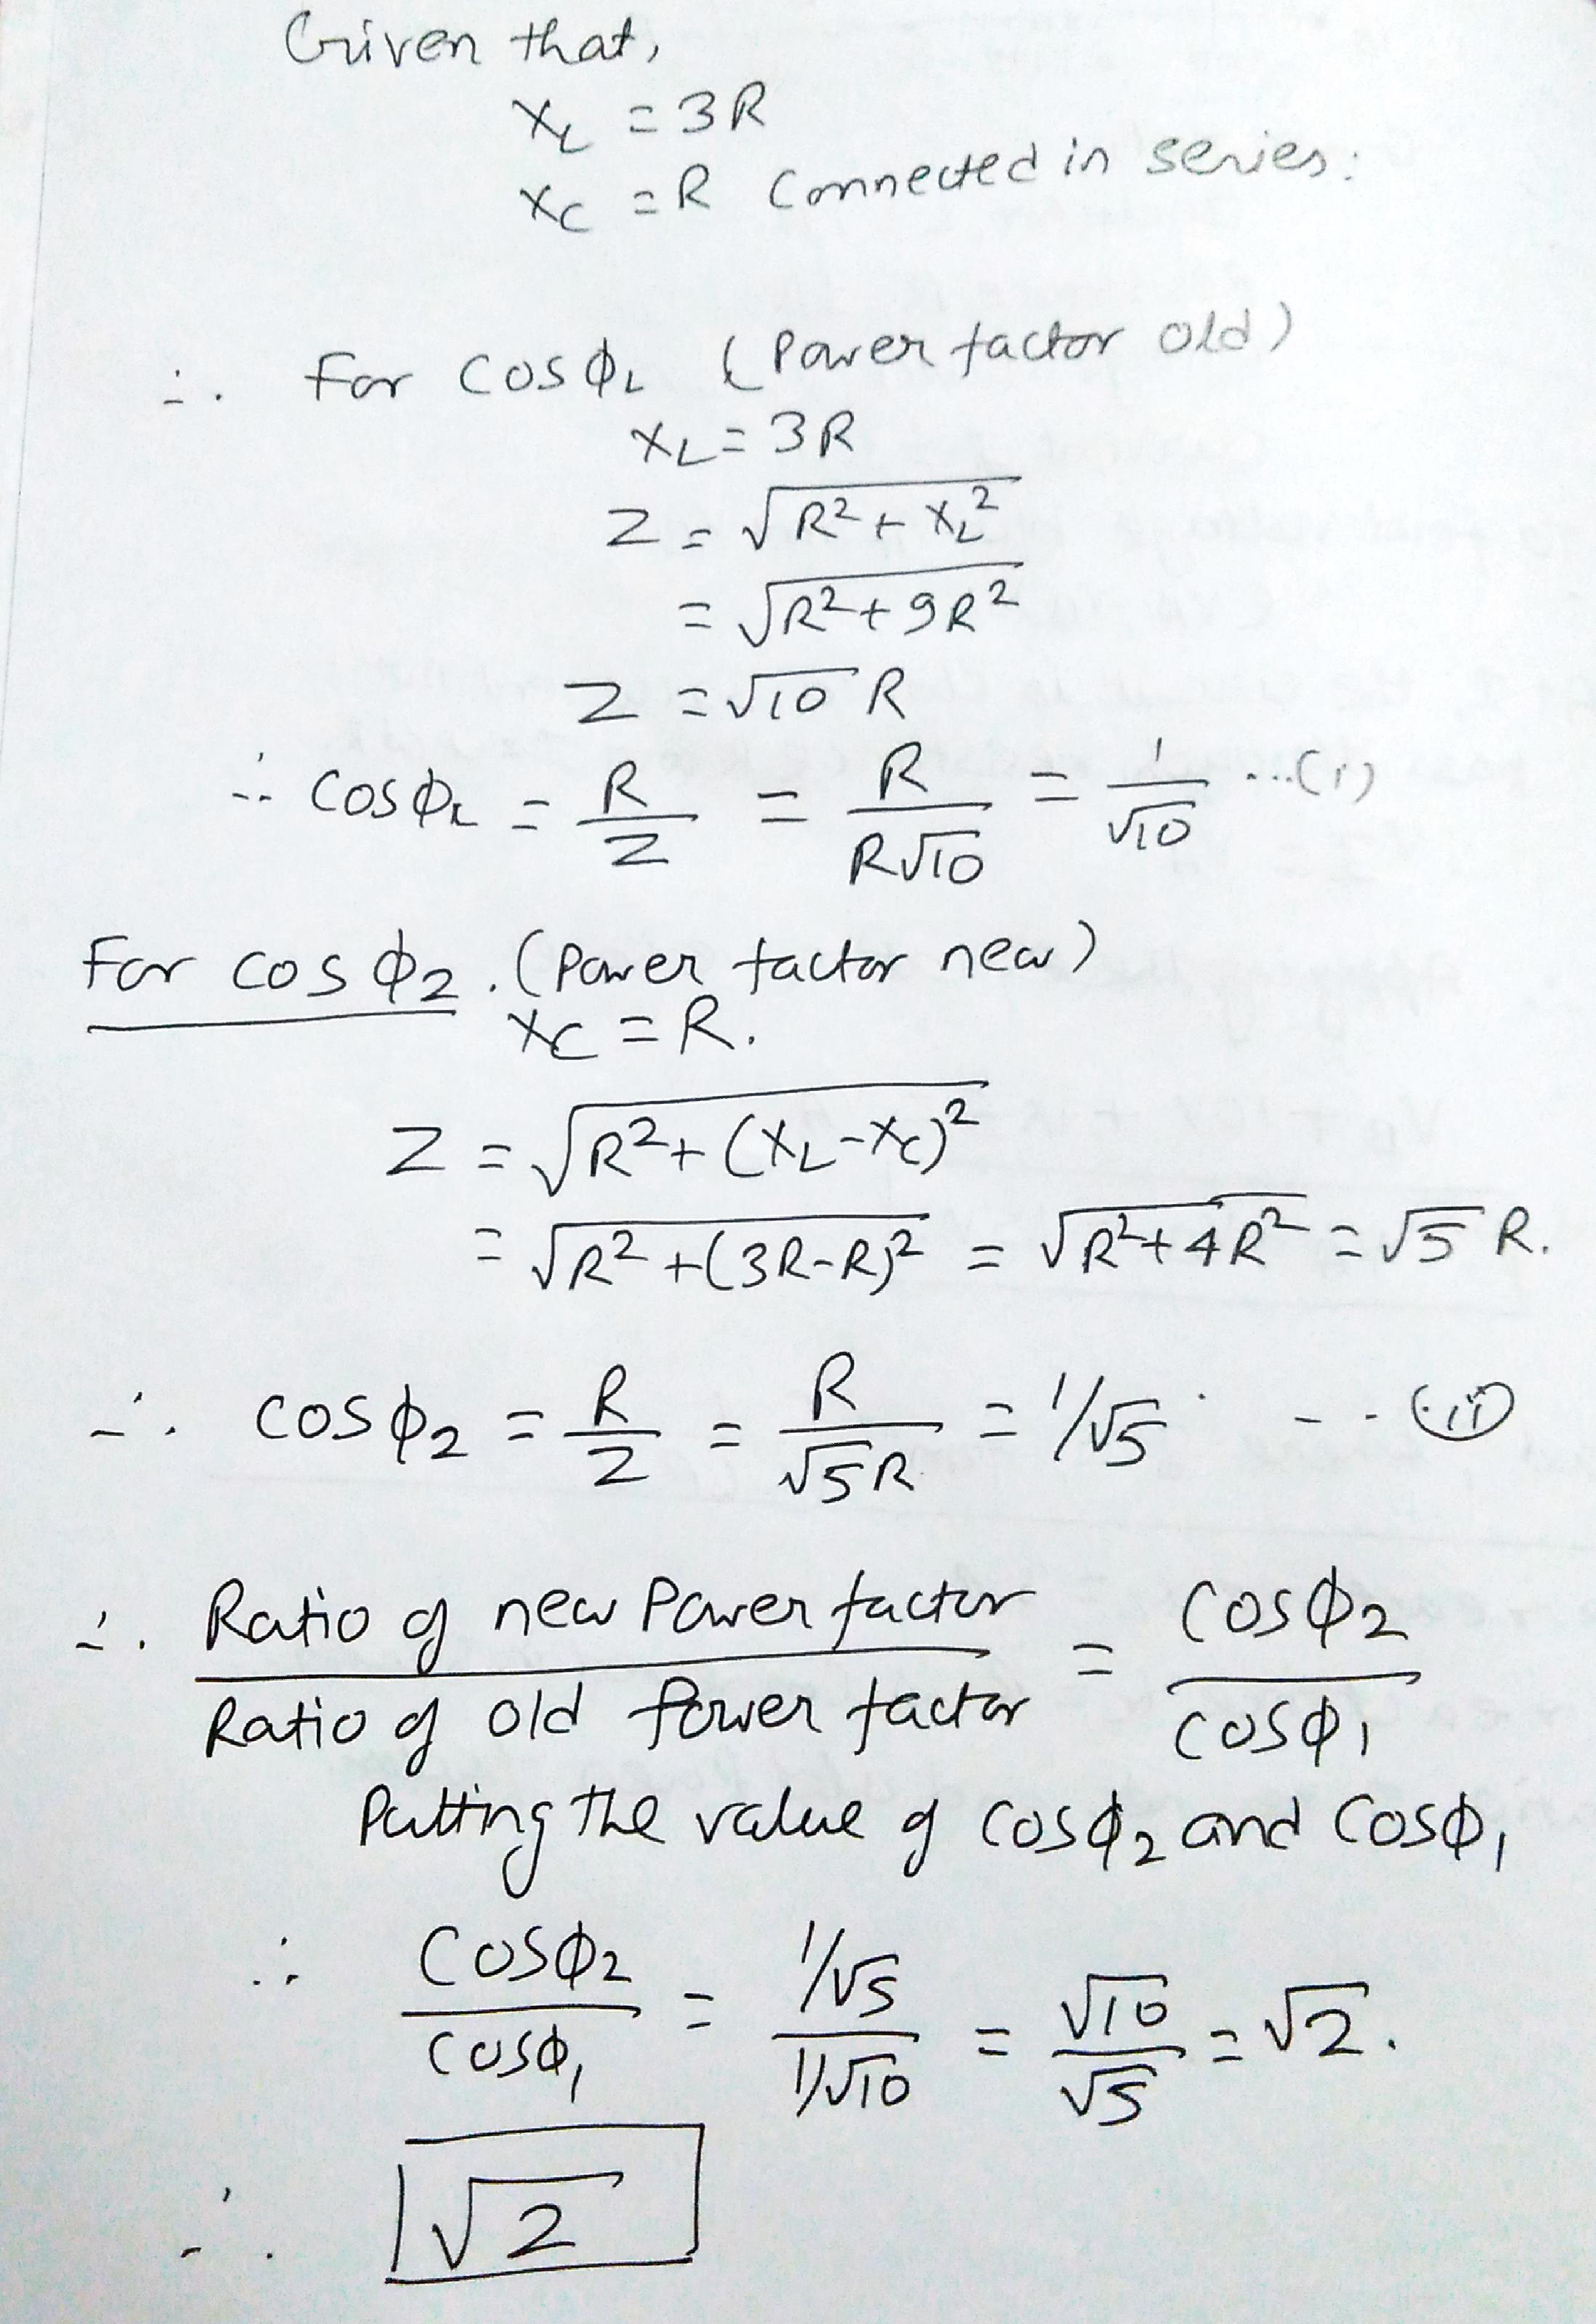 Given that,
X_L = 3R
X_C = R Connected in series.
∴ For cosϕ_L (Power factor old)
X_L = 3R
Z = √(R² + X_L²)
= √(R² + 9R²)
Z = √10 R
∴ cosϕ_L = R/Z = R/(R√10) = 1/√10 ...(i)
For cosϕ₂. (Power factor new)
X_C = R.
Z = √(R² + (X_L - X_C)²)
= √(R² + (3R-R)²) = √(R² + 4R²) = √5 R.
∴ cosϕ₂ = R/Z = R/(√5 R) = 1/√5 . - - (ii)
∴ Ratio of new Power factor / Ratio of old Power factor = cosϕ₂ / cosϕ₁
Putting the value of cosϕ₂ and cosϕ₁
∴ cosϕ₂ / cosϕ₁ = (1/√5) / (1/√10) = √10 / √5 = √2.
∴ √2